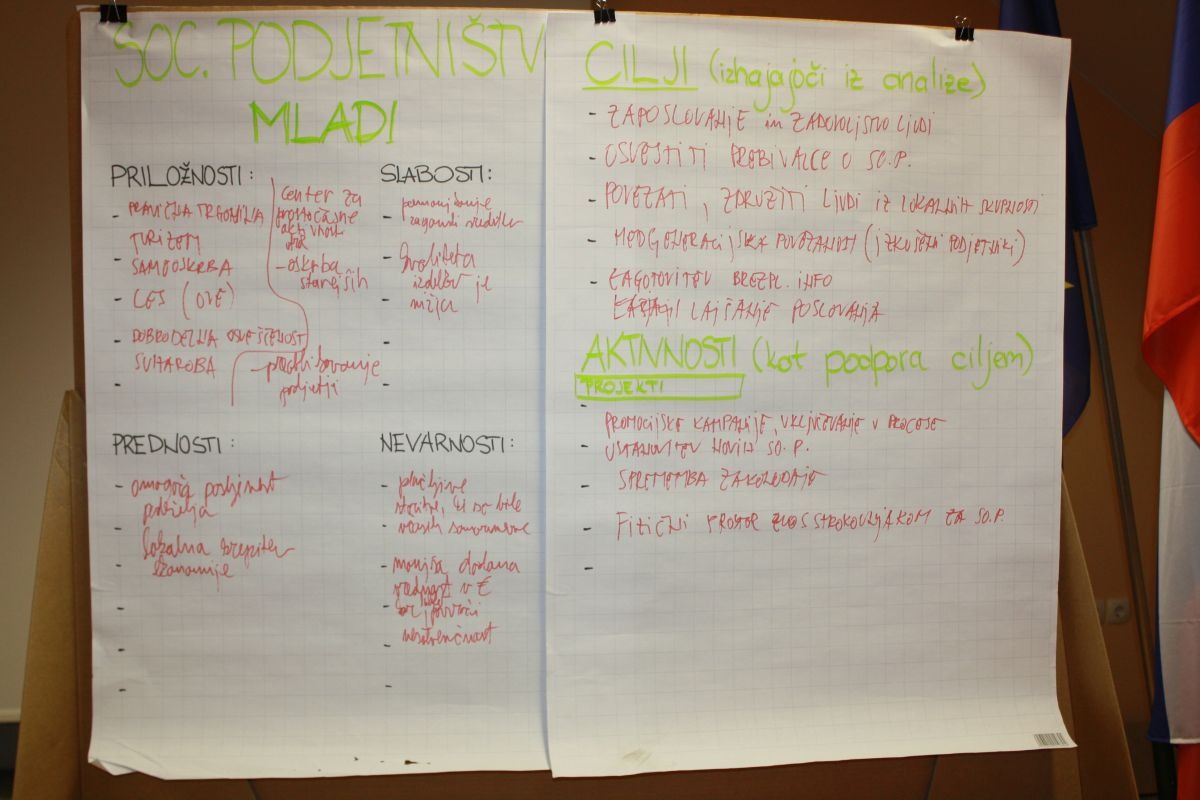 SOC. PODJETNIŠTV
MLADI
PRILOŽNOSTI:
- PRAVIČNA TRGOVINA
TURIZEM
- SAMOOSKRBA
- LES (OVE)
- DOBRODELNA OSVEŠČENOST
SVHAROBA
-
center za
prostočasne
aktivnosti
- oskrba
starejših
podjetja
SLABOSTI:
-
zagonskih sredstev
- kvaliteta
izdelkov je
nižja
-
-
PREDNOSTI:
- omogoča
podeželja
lokalna krepitev
ekonomije
-
-
-
NEVARNOSTI:
- plačljive
storitve, či so bile
- včasih
- manjša dodana
vrednost v €
-
-
CILJI (izhajajoči iz analize)
- ZAPOSLOVANJE in ZADOVOLJSTVO LJUDI
- OSVESTITI PREBIVALCE O SO.P.
- POVEZATI, ZDRUŽITI LJUDI IZ LOKALNIH SKUPNOSTI
- MEDGENERACIJSKA POVEZANOST (IZKUŠENI PODJETNIKI)
- ZAGOTOVITEV BREZPL. INFO
LAJŠANJE POSLOVANJA
AKTIVNOSTI (kot podpora ciljem)
PROJEKTI
-
PROMOCIJSKE KAMPANIJE, VKLJUČEVANJE V PROCESE
- USTANOVITEV NOVIH SO.P.
- SPREMEMBA ZAKONODAJE
- FIZIČNI PROSTOR S STROKOVNJAKOM ZA SO.P.
-